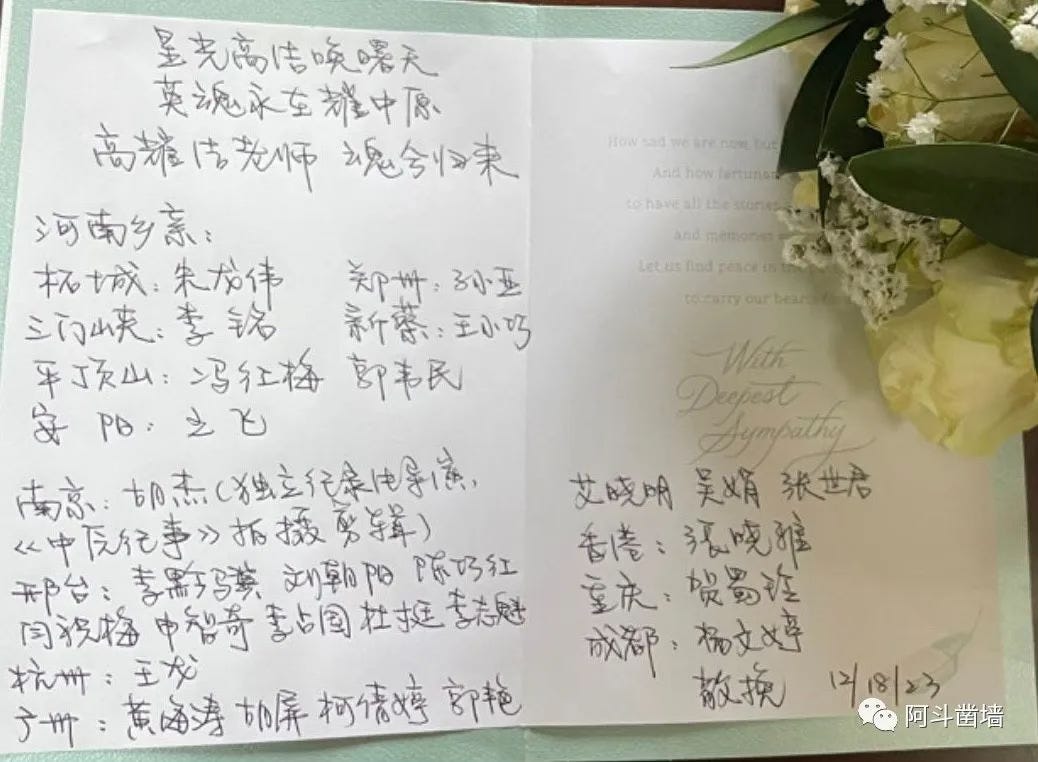 星光高洁唤曙天
英魂永在耀中原
高耀洁老师 魂兮归来
河南乡亲:
柘城:朱龙伟 郑州:孙亚
三门峡:李铭 新蔡:王小巧
平顶山:冯红梅 郭韦民
安阳:之飞
南京:胡杰(独立纪录片导演,
《中原纪事》拍摄剪辑)
邢台:李黑玛英 刘朝阳 陈巧红
闫祝梅 申智奇 李占国 杜挺 李志魁
杭州:王龙
广州:黄海涛 胡屏 柯倩婷 郭艳
How sad we are now, but
And how fortunat
to have all the stories
and memories
Let us find peace in th
to carry our hearts
With
Deepest
Sympathy
艾晓明 吴娟 张世君
香港:張曉雅
重庆:贺蜀玲
成都:杨文婷
敬挽 12/18/23
阿斗凿墙